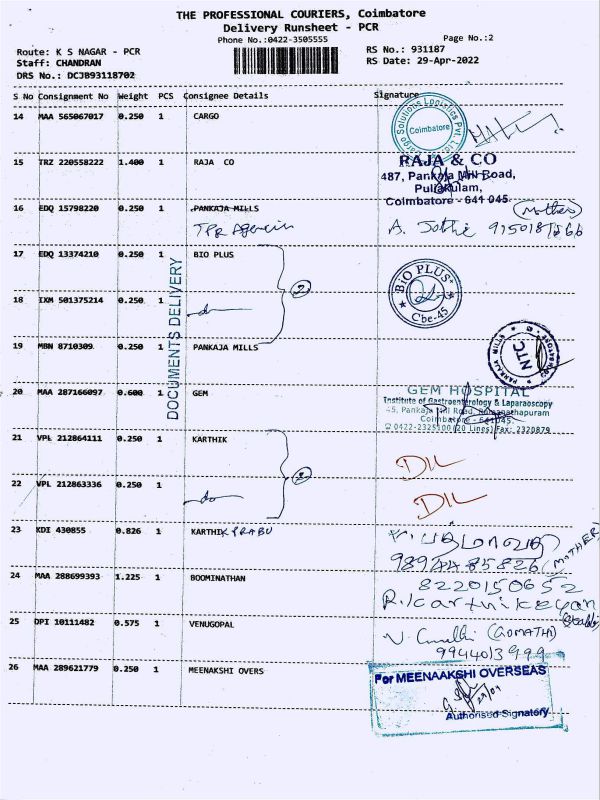 THE PROFESSIONAL COURIERS, Coimbatore
Delivery Runsheet - PCR
Phone No.:0422-3505555
Page No.:2
Route: K S NAGAR - PCR
RS No.: 931187
Staff: CHANDRAN
RS Date: 29-Apr-2022
DRS No.: DCJB93118702
S No Consignment No Weight PCS Consignee Details Signature
14 MAA 565067017 0.250 1 CARGO
Cargo Solutions Logistics Pvt. Ltd.
Coimbatore
15 TRZ 220558222 1.400 1 RAJA CO
RAJA & CO
487, Pankaja Mill Road,
Puliakulam,
Coimbatore - 641 045.
16 EDQ 15798220 0.250 1 PANKAJA MILLS
TPR Agencies
(Mother)
A. Jothi
17 EDQ 13374210 0.250 1 BIO PLUS
BIO PLUS
Cbe-45
2
18 IXM 501375214 0.250 1
do
DOCUMENTS DELIVERY
19 MBN 8710309 0.250 1 PANKAJA MILLS
NTC
20 MAA 287166097 0.600 1 GEM
GEM HOSPITAL
Institute of Gastroenterology & Laparaoscopy
45, Pankaja Mill Road, Ramanathapuram
Coimbatore - 641045.
0422-2325100 (20 Lines) Fax: 2320879
21 VPL 212864111 0.250 1 KARTHIK
D/L
22 VPL 212863336 0.250 1
do
D/L
23 KDI 430855 0.826 1 KARTHIK PRABU
9894485826 (MOTHER)
24 MAA 288699393 1.225 1 BOOMINATHAN
8220150652
R. Karthikeyan
25 OPI 10111482 0.575 1 VENUGOPAL
(GOMATHI)
9944013999
26 MAA 289621779 0.250 1 MEENAKSHI OVERS
For MEENAAKSHI OVERSEAS
29/04
Authorised Signatory